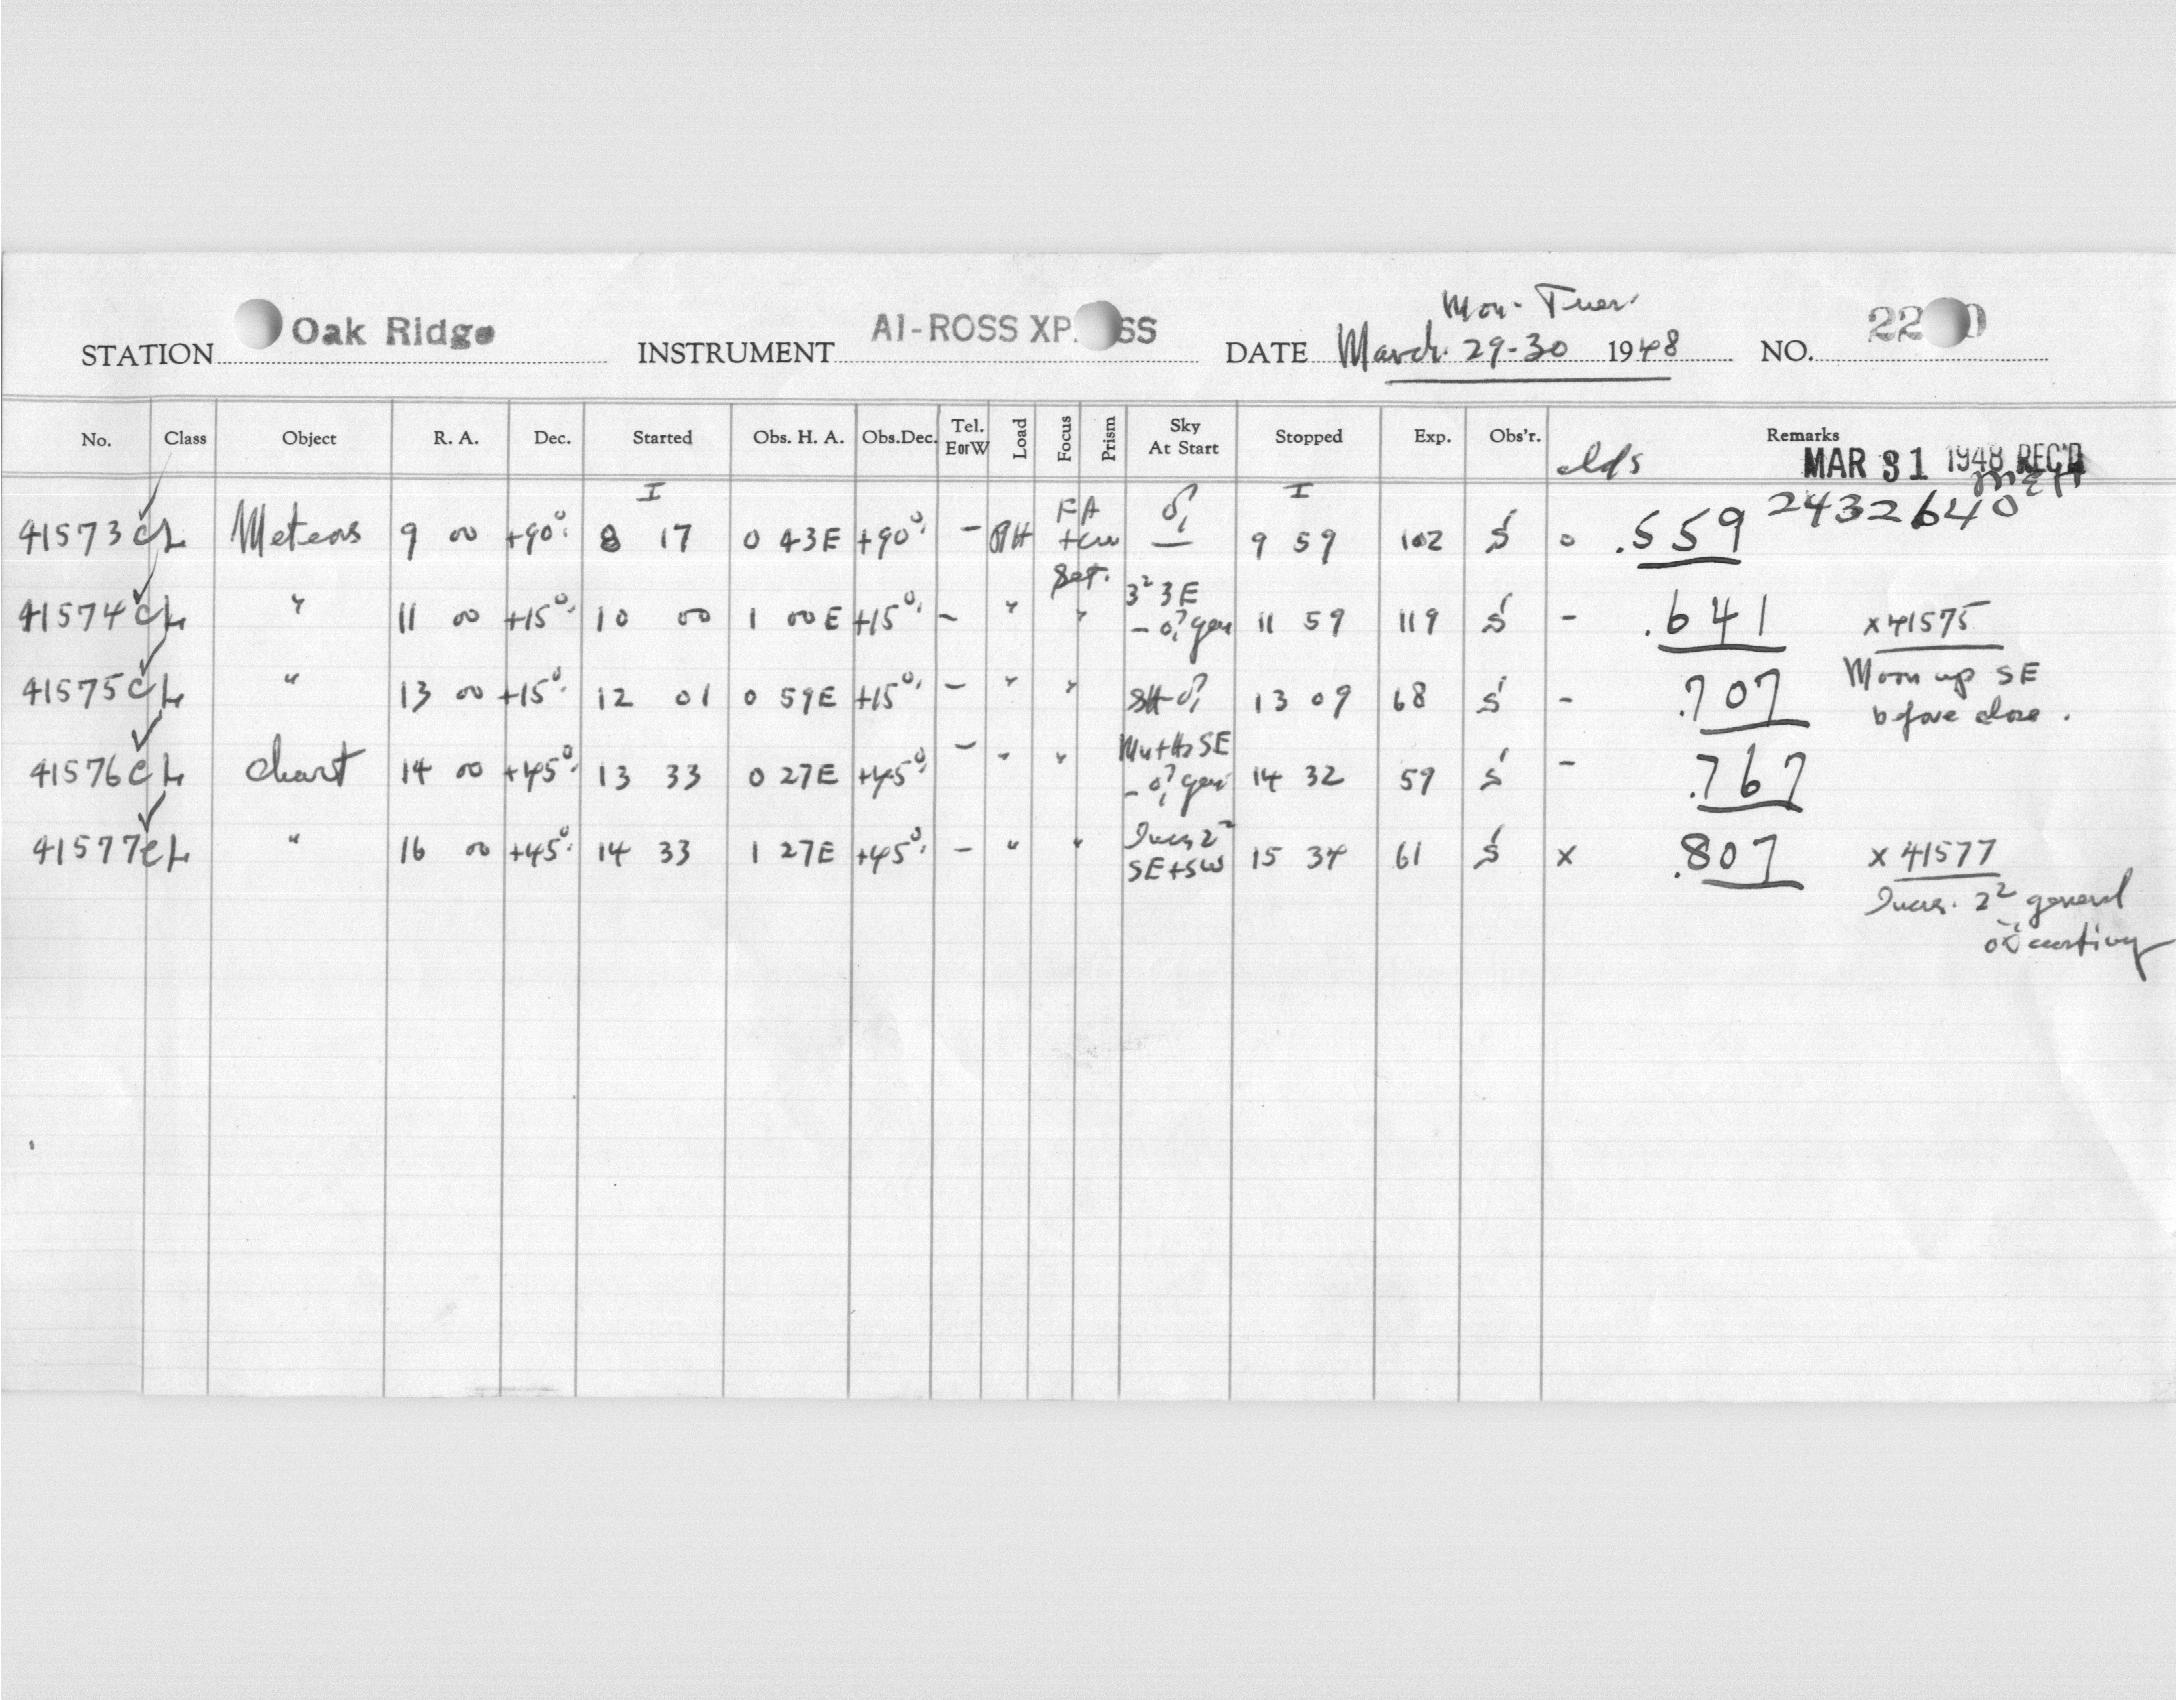 Mon - Tues.
STATION Oak Ridge INSTRUMENT AI-ROSS XP SS DATE March 29-30 1948 NO. 22 0
No. Class Object R. A. Dec. Started Obs. H. A. Obs.Dec. Tel. E or W Load Focus Prism Sky At Start Stopped Exp. Obs'r. Remarks
clds MAR 31 1948 REC'D
2432640
41573 CL Meteors 9 00 +90° 8 17 0 43E +90° - FA 9 59 102 S 0 .559
Set.
41574 CL " 11 00 +15° 10 00 1 00 E +15° - " " 3² 3E 11 59 119 S - .641 x 41575
41575 CL " 13 00 +15° 12 01 0 59E +15° - " " 13 09 68 S - .707 Moon up SE
before close.
41576 CL Chart 14 00 +45° 13 33 0 27E +45° - " " SE 14 32 59 S - .767
41577 CL " 16 00 +45° 14 33 1 27E +45° - " " Incrs 2² 15 34 61 S x .807 x 41577
SE+SW
Incrs. 2² general